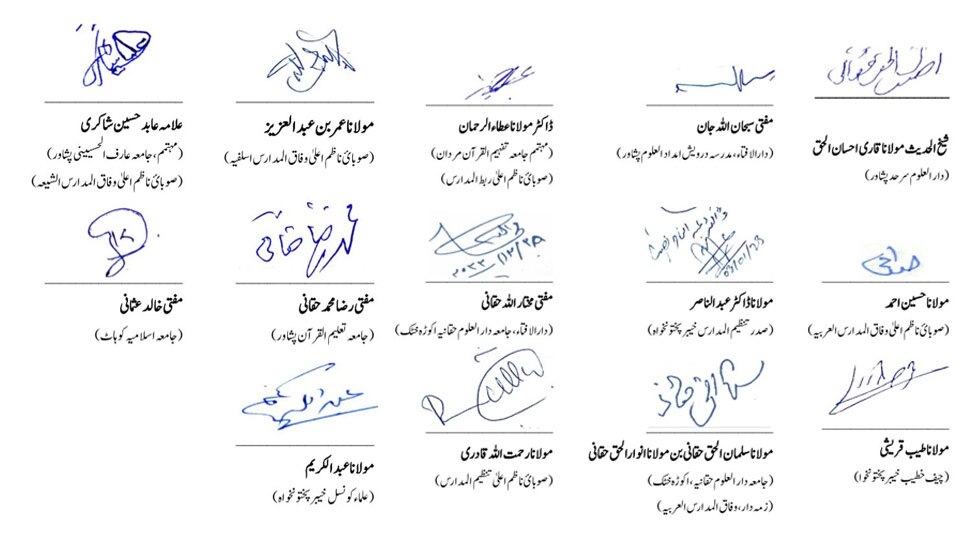 شیخ الحدیث مولانا قاری احسان الحق
(دار العلوم سرحد پشاور)
مفتی سبحان اللہ جان
(دارالافتاء، مدرسہ درویش امداد العلوم پشاور)
ڈاکٹر مولانا عطاء الرحمان
(مہتمم جامعہ تفہیم القرآن مردان)
(صوبائی ناظم اعلیٰ ربط المدارس)
مولانا عمر بن عبد العزیز
(صوبائی ناظم اعلیٰ وفاق المدارس السلفیہ)
علامہ عابد حسین شاکری
(مہتمم، جامعہ عارف الحسینی پشاور)
(صوبائی ناظم اعلیٰ وفاق المدارس الشیعہ)
مولانا حسین احمد
(صوبائی ناظم اعلیٰ وفاق المدارس العربیہ)
03/01/23
مولانا ڈاکٹر عبد الناصر
(صدر تنظیم المدارس خیبر پختونخواہ)
۲۰۲۲/۱۲/۲۸
مفتی مختار اللہ حقانی
(دارالافتاء، جامعہ دار العلوم حقانیہ اکوڑہ خٹک)
محمد رضا حقانی
مفتی رضا محمد حقانی
(جامعہ تعلیم القرآن پشاور)
مفتی خالد عثمانی
(جامعہ اسلامیہ کوہاٹ)
مولانا طیب قریشی
(چیف خطیب خیبر پختونخوا)
مولانا سلمان الحق حقانی بن مولانا انوار الحق حقانی
(جامعہ دار العلوم حقانیہ، اکوڑہ خٹک)
(زمہ دار، وفاق المدارس العربیہ)
مولانا رحمت اللہ قادری
(صوبائی ناظم اعلیٰ تنظیم المدارس)
مولانا عبد الکریم
(علماء کونسل خیبر پختونخواہ)